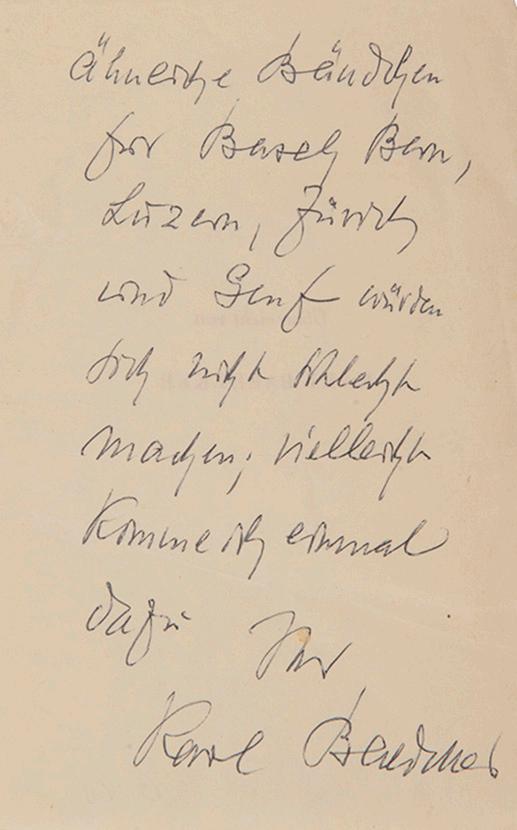 ähnliche Bändchen
für Basel, Bern,
Luzern, Zürich
und Genf würden
sich nicht schlecht
machen; vielleicht
komme ich einmal
dazu Ihr
Karl